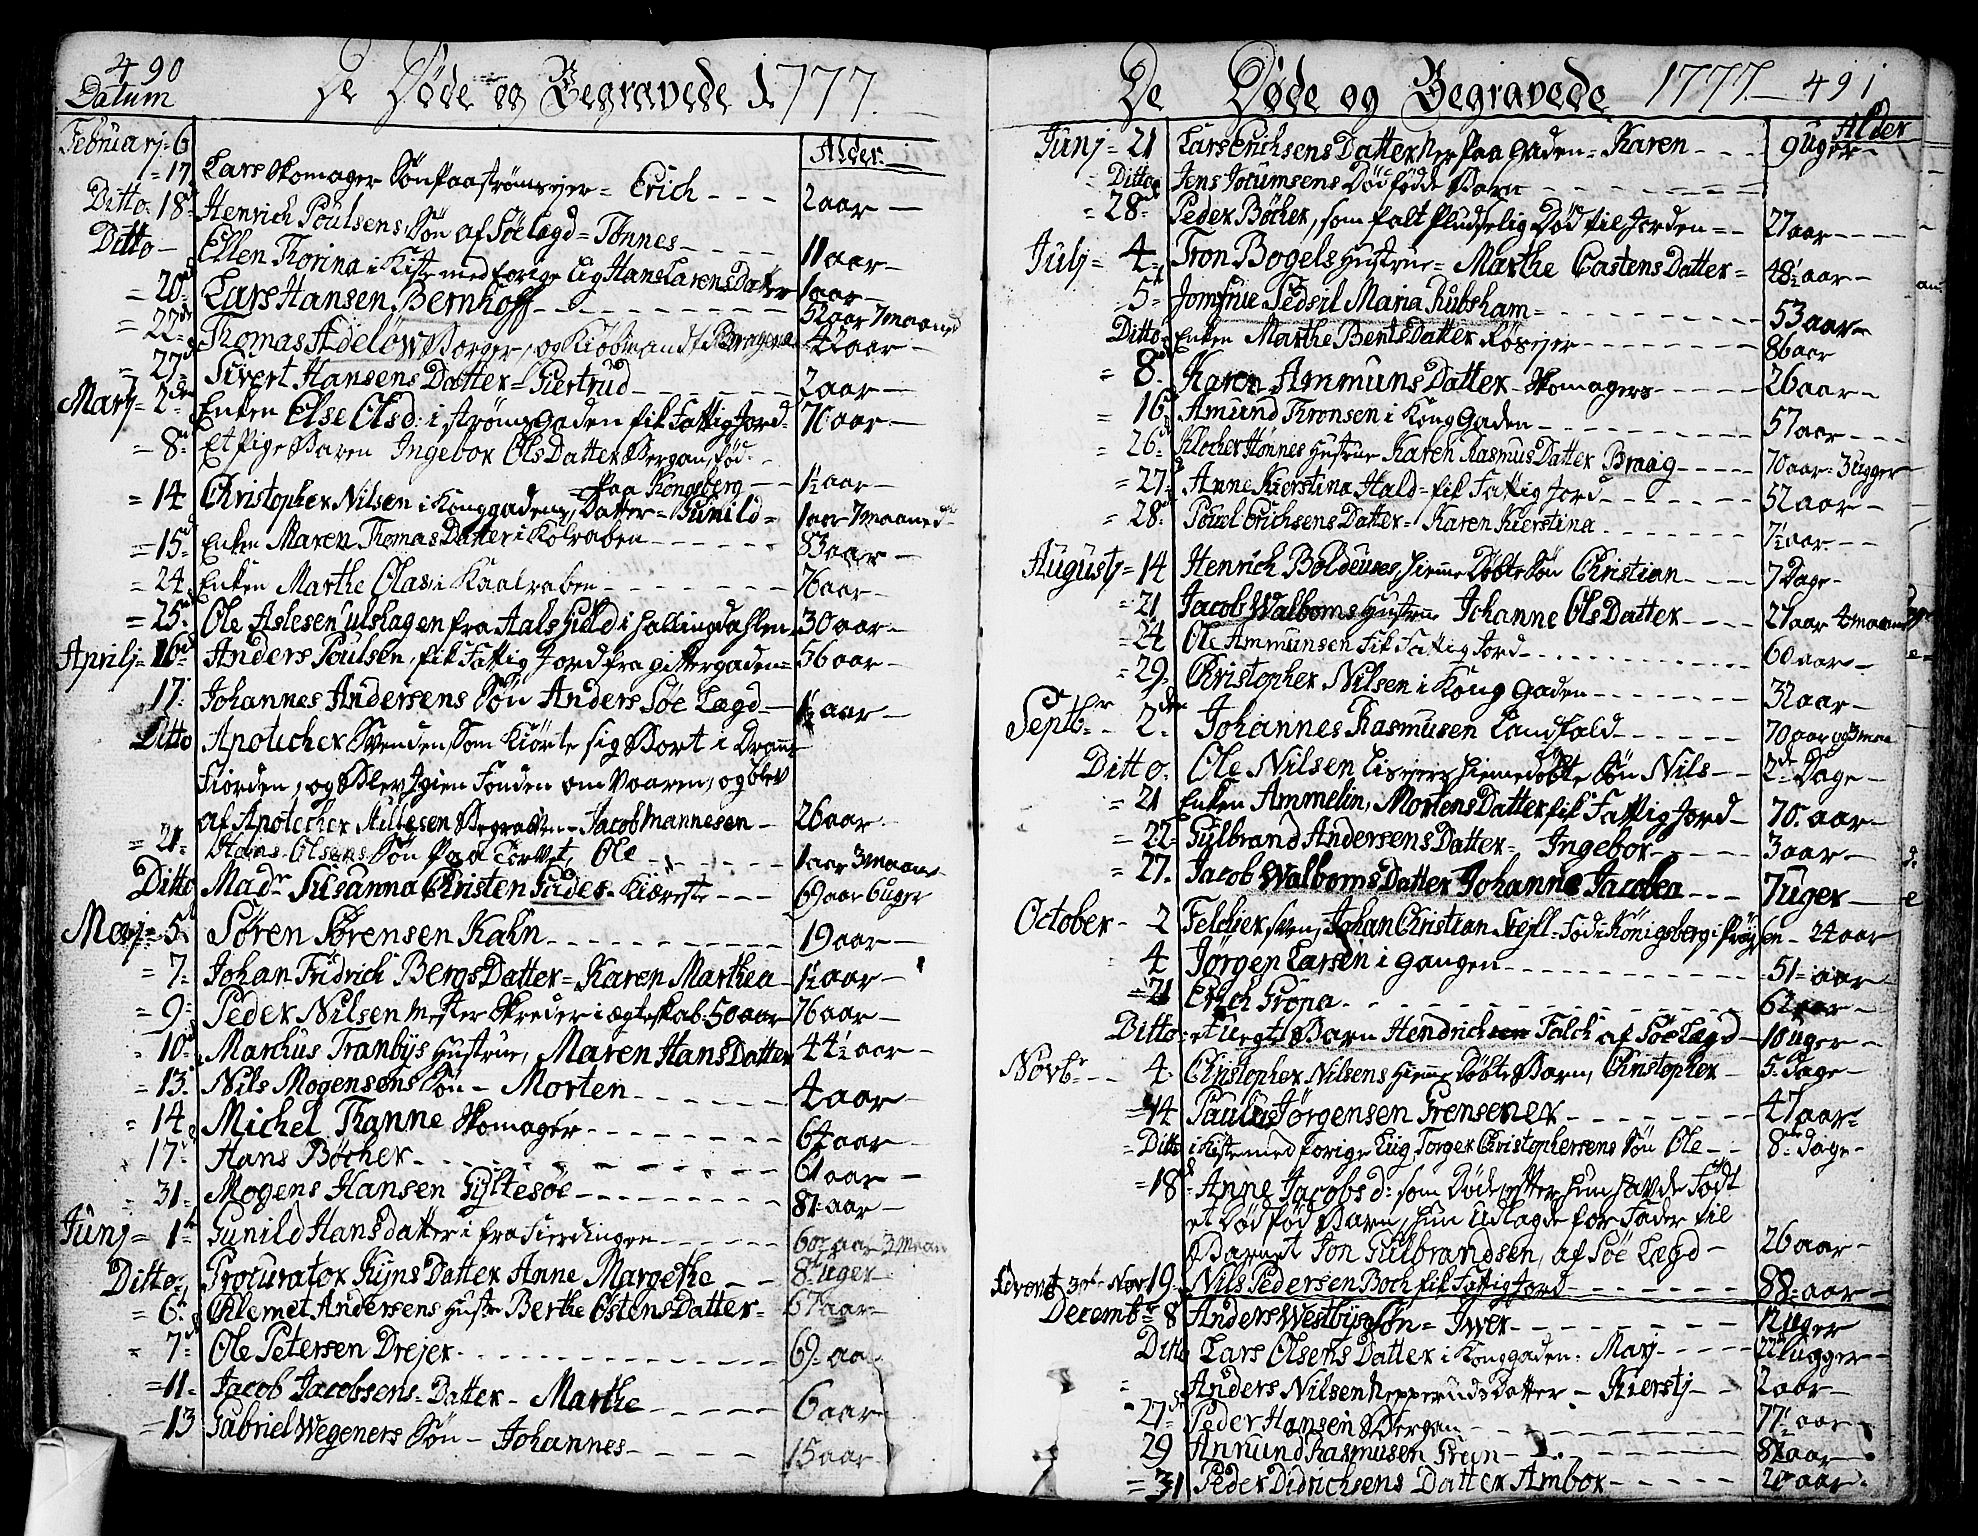 490
Datum
De Døde og Begravede 1777.
Alder.
Februarj 6
= 17. Lars Skomager Søn paa strømsøer = Erich --- 2 aar —
Ditto 18 Henrich Poulsens Søn af Søe Lægd = Tønnes ---- 11 aar —
Ditto — Ellen Thorina i Kiste med forige Lig Hans Larensdatter 1 aar —
= 20 Lars Hansen Bernhoff ---- 52 aar 7 maaned
= 22 Thomas Adeløw Borger, og Kiøbmand 42 aar —
= 27 Sivert Hansens Datter = Giertrud ---- 2 aar —
Martj = 2 Enken Else Olsd: i strømsgaden fik Fattig Jord = 70 aar —
= 8 Et Pige Barn Ingebor Ols Datter Bergan, fød --
paa Kongsberg -- 1½ aar —
= 14 Christopher Nilsen i Konggadens Datter = Gunild = 1 aar 7 maaned
= 15 Enken Maren Thomas Datter i Kolraben ---- 83 aar —
= 24 Enken Marthe Olas i Kaalraben ---- 76 aar —
= 25 Ole Aslesen Ulshagen fra Aals Gield i Hallingdahlen 30 aar —
Aprilj = 16 Anders Poulsen, fik Fattig Jord fra gittergaden = 56 aar —
17. Johannes Andersens Søn Anders Søe Lægd — 1½ aar —
Ditto Apoticher Svenden Som Kiørte sig Bort i Dram
Fiorden, og Blev Igien Fonden om Vaaren, og blev
af Apoticher Begraven = Jacob Mannesen — 26 aar —
= 21. Hans Olsens Søn Paa Torvet, Ole --- 1 aar 3 maan
Ditto Madr Susanna Christen Gudes Kiæreste --- 69 aar 6 uger
Maj = 5 Søren Sørensen Kahn ---- 19 aar —
= 7. Johan Fridrich Bergs Datter = Karen Marthea 1¼ aar —
= 9. Peder Nilsen Mester Skreder i ægteskab = 50 aar 76 aar —
= 10 Marchus Tranbys Hustrue, Maren Hans Datter 44½ aar —
= 13. Nils Mogensens Søn — Morten ---- 4 aar —
= 14 Michel Thanne Skomager ---- 64 aar —
17 Hans Bøcher ---- 61 aar —
31 Mogens Hansen Gyltesøe ---- 81 aar —
Junj = 1 Gunild Hansdatter i fra Fierdingen ---- 60 aar 3 Maan
Ditto Procurator Kyns Datter Anne Margethe -- 8 uger
= 6 Clemet Andersens Hustr Berthe Østens Datter = 67 aar
= 7 Ole Petersen Drejer ---- 69 aa
= 11 Jacob Jacobsens Datter — Marthe ---- 6 aar
= 13 Gabriel Wegeners Søn — Johannes ---- 15 aar
De Døde og Begravede 1777. 491
Alder
Junj = 21 Lars Erichsens Datter her paa Gaden = Karen --- 9 Uger —
Ditto Jens Jocumsens Dødfødde Barn ----
= 28 Peder Bøcher, som falt Pluddelig Død til Jorden = 27 aar ---
Julj = 4 Tron Bogels Hustrue = Marthe Castens Datter = 48½ aar —
5 Jomfrue Pedsil Maria Lubsham ---- 53 aar —
Ditto Enken Marthe Bents Datter ---- 86 aar
= 8 Karen Ammuns Datter Skomagers ---- 26 aar —
= 16 Amund Thronsen i Kong Gaden ---- 57 aar ---
= 26 Klocher Hønnes Hustrue Karen Rasmus Datter Braag ---- 70 aar = 3 ugger
= 27. Anne Kierstina Hald = fik Fattig Jord ---- 52 aar —
= 28 Povel Erichsens Datter = Karen Kierstina ---- 7½ aar —
Augustj = 14 Henrich Boldeuws, Hieme Døbte Søn Christian ---- 7 Dage —
= 21 Jacob Walboms Hustrue Johanne Ols Datter --- 27 aar 4 maan
= 24 Ole Ammunsen Fik Fattig Jord ---- 60 aar —
= 29. Christopher Nilsen i Kong Gaden ---- 32 aar —
Septbr 2 Johannes Rasmusen Landfald ---- 70 aar og 3 maa
Ditto. Ole Nilsen hiemedøbte Søn Nils — 2 Dage —
= 21 Enken Ammelin, Mortens Datter fik Fattig Jord — 70 aar —
= 22 Gulbrand Andersens Datter = Ingebor ---- 3 aar —
= 27. Jacob Walboms Datter Johanne Jacobea --- 7 uger —
October - 2 Feltscher sven, Johan Christian = Fød i Königsberg i Prøysen — 24 aar
4 Jørgen Larsen i gangen ---- 51 = aar —
= 21 Erich Gropa ---- 62 aar —
Ditto = et uegte Barn Hendrich Falch af Søe Lægd — 10 uger —
Novbr 4. Christopher Nilsens Hieme Døbte Barn, Christopher — 5 Dage —
= 14 Paulus Jørgensen Grensener ---- 47 aar =
= Ditto i Kiste med forige Liig Torger Christophersens Søn Ole — 8 Dage —
= 18 Anne Jacobs d: som Døde, efter hun havde Født
et Død fød Barn, hun Udlagde for Fader til
Barnet Jon Gulbrandsen, af Søe Lægd — 26 aar —
Advent 30 Nov 19 Nils Pedersen Boch fik Fattig Jord ---- 88 = aar —
Decembr 8 Anders Westbys Søn = Iwer ---- 12 uger
Ditto Lars Olsens Datter i Konggaden = Marj ---- 22 ugger —
Anders Nilsen Hepperuds Datter — Kierstj — 2 aar —
27 Peder Hansen Bergan ---- 77½ aar —
29 Annund Rasmusen Gren ---- 82 aar —
= 31 Peder Didrichsens Datter Ambor ---- 20 aar